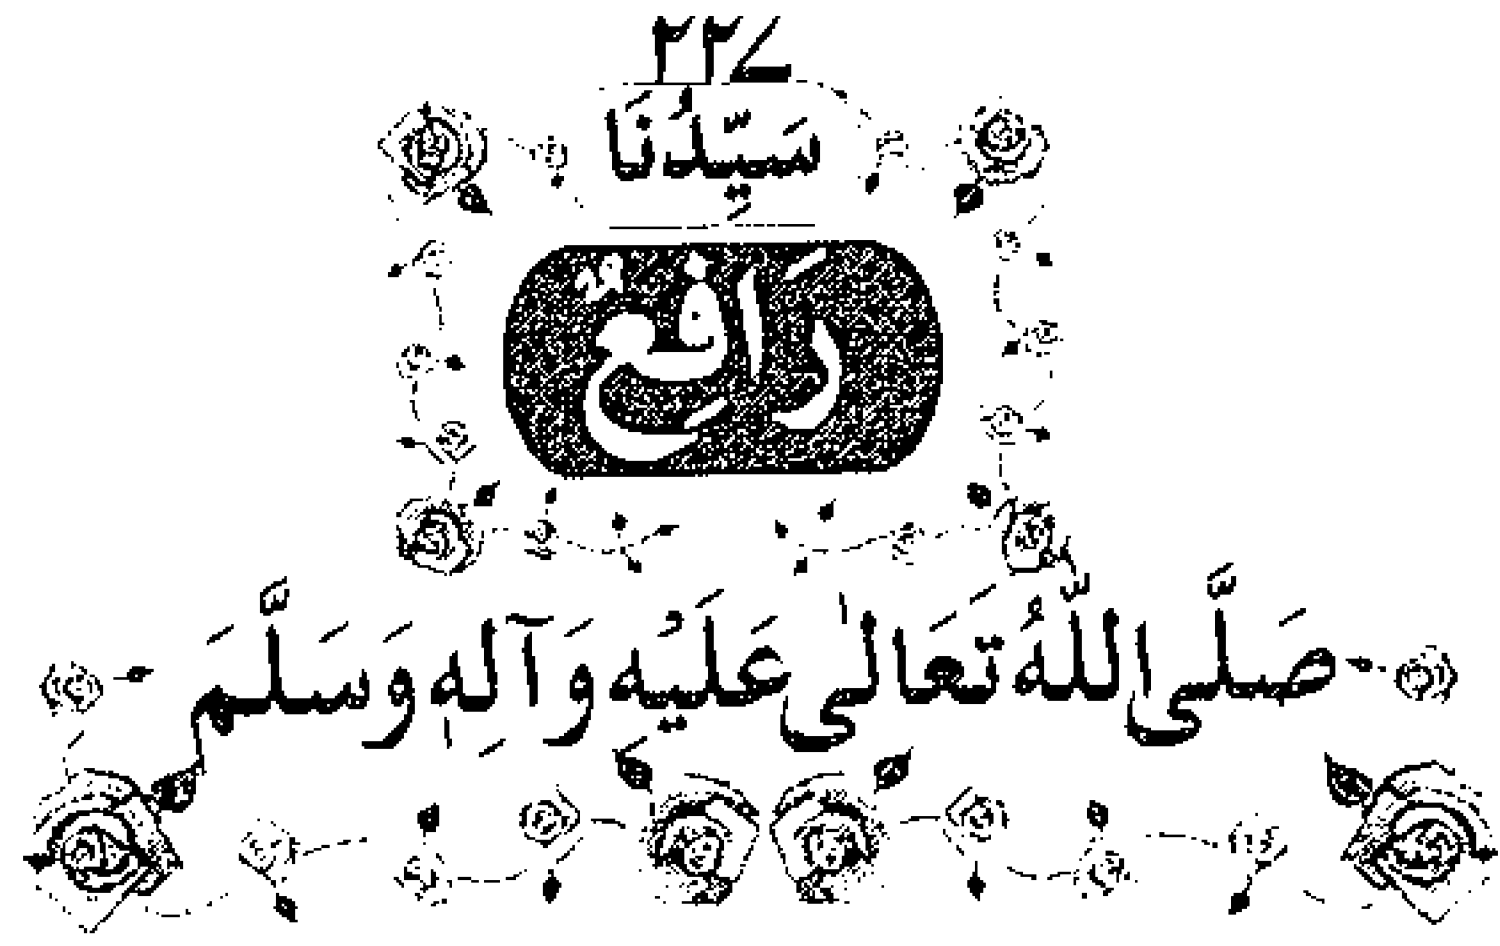 ۲۲۷
سَيِّدُنَا
رَافِعٌ
صَلَّى اللّٰهُ تَعَالٰى عَلَيْهِ وَآلِهٖ وَسَلَّمَ